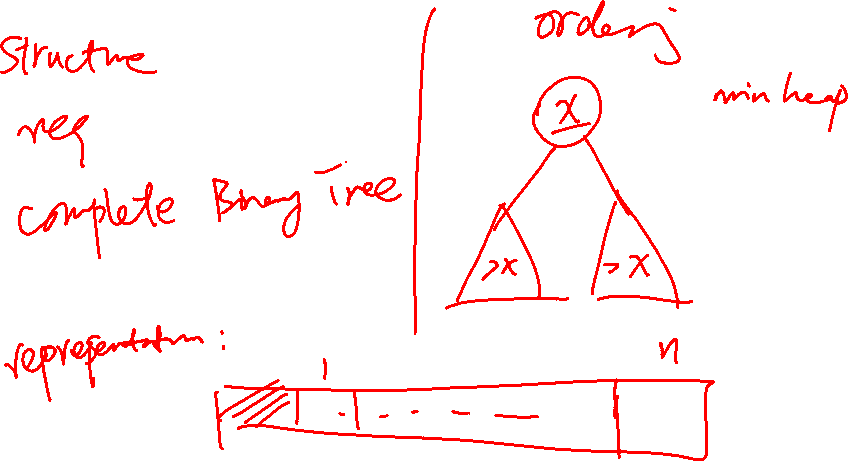 Structure
req
complete Binary Tree
ordering
min heap
x
>x >x
representation:
1 n